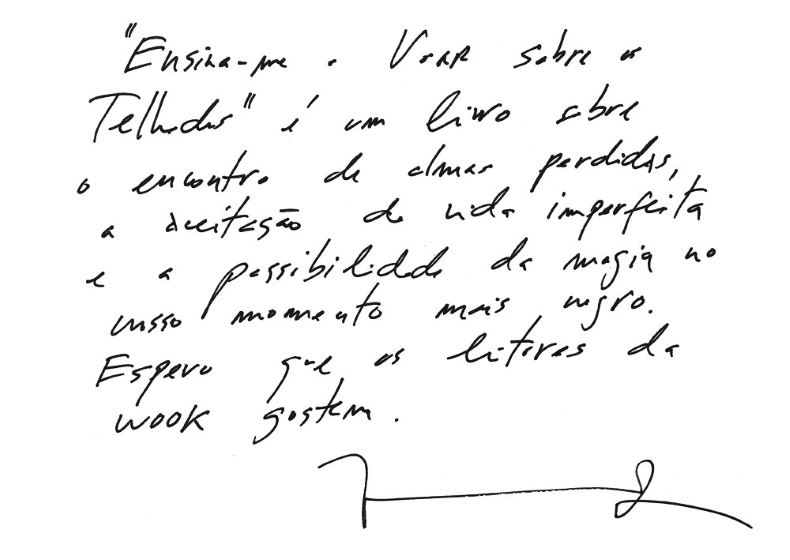 "Ensina-me a Voar sobre os
Telhados" é um livro sobre
o encontro de almas perdidas,
a aceitação da vida imperfeita
e a possibilidade da magia no
nosso momento mais negro.
Espero que os leitores da
wook gostem.